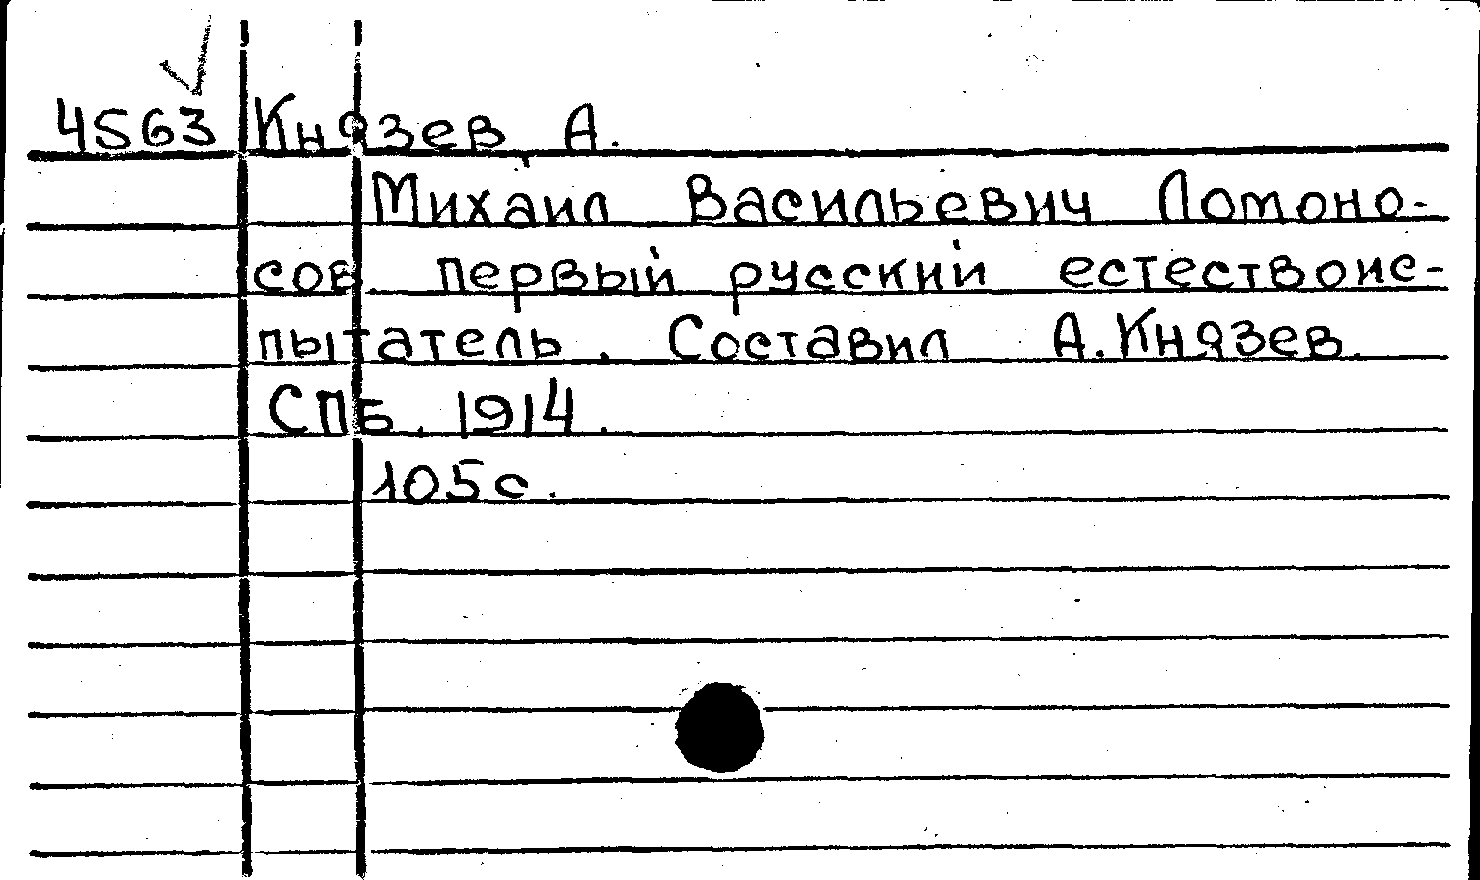 4563 Князев, А.
Михаил Васильевич Ломоно-
сов. первый русский естествоис-
пытатель. Составил А.Князев.
СПБ. 1914.
105с.